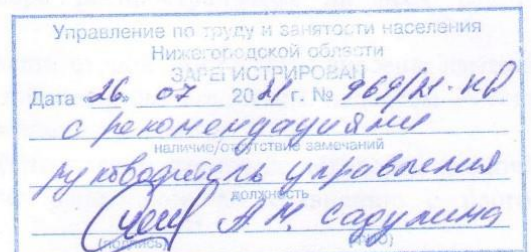 Управление по труду и занятости населения
Нижегородской области
ЗАРЕГИСТРИРОВАН
Дата «26» 07 2021 г. № 969/21-КД
с рекомендациями
наличие/отсутствие замечаний
руководитель управления
должность
А.М. Садулина
(подпись) (ФИО)